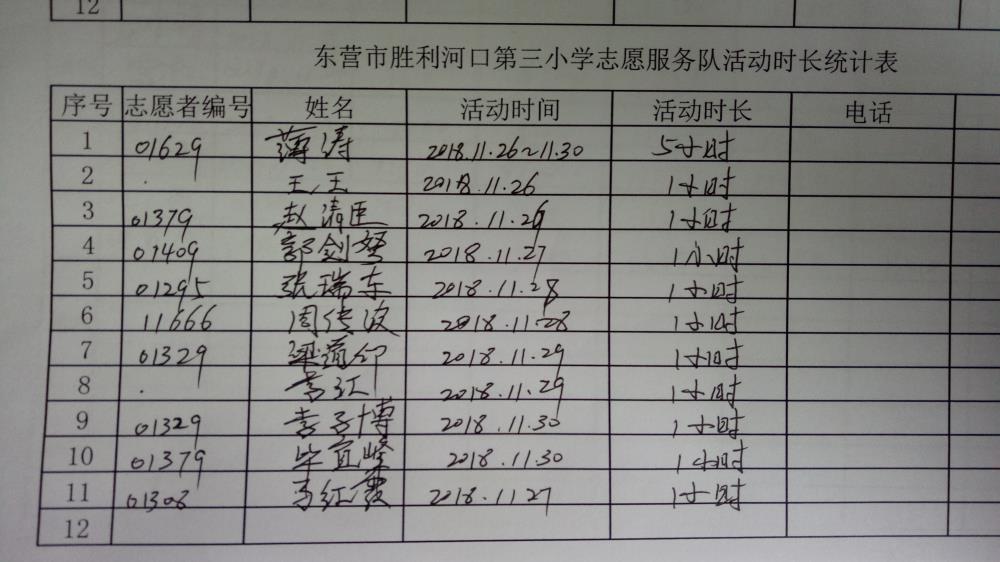 12
东营市胜利河口第三小学志愿服务队活动时长统计表
序号 志愿者编号 姓名 活动时间 活动时长 电话
1 01629 薄涛 2018.11.26~11.30 5小时
2 . 王,王 2018.11.26 1小时
3 01379 赵清臣 2018.11.26 1小时
4 01409 郭剑 2018.11.27 1小时
5 01295 张瑞东 2018.11.28 1小时
6 11666 周传波 2018.11.28 1小时
7 01329 梁道印 2018.11.29 1小时
8 . 李江 2018.11.29 1小时
9 01329 李子博 2018.11.30 1小时
10 01379 毕宜峰 2018.11.30 1小时
11 01308 马红霞 2018.1127 1小时
12